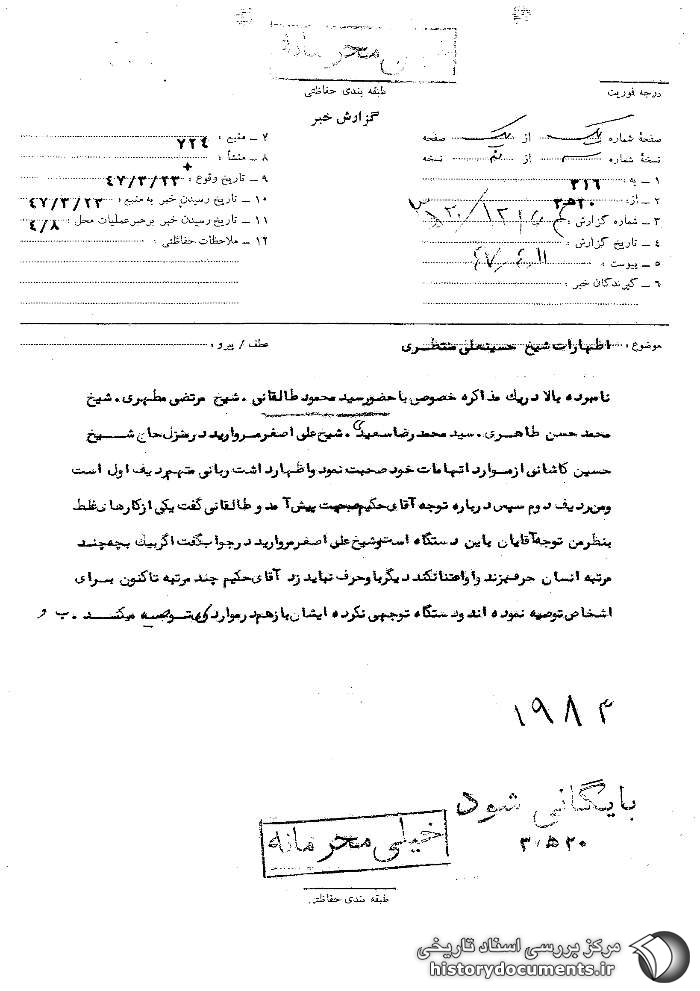 خیلی محرمانه
طبقه بندی حفاظتی
درجه فوریت
گزارش خبر
صفحهٔ شماره یک از یک صفحه
نسخهٔ شماره از نسخه
۱ ـ به : ۳۱۶
۲ ـ از : ۲۰ ه ۳
۳ ـ شماره گزارش :
۴ ـ تاریخ گزارش :
۵ ـ پیوست :
۶ ـ گیرندگان خبر :
۷ ـ منبع : ۷۲۴
۸ ـ منشأ :
۹ ـ تاریخ وقوع : ۴۷/۳/۲۳
۱۰ ـ تاریخ رسیدن خبر به منبع : ۴۷/۳/۲۳
۱۱ ـ تاریخ رسیدن خبر برهبر عملیات محل : ۴/۸
۱۲ ـ ملاحظات حفاظتی :
موضوع : اظهارات شیخ حسینعلی منتظری
عطف / پیرو :
نامبرده بالا در یک مذاکره خصوصی با حضور سید محمود طالقانی . شیخ مرتضی مطهری . شیخ
محمد حسن طاهری . سید محمد رضا سعیدی . شیخ علی اصغر مروارید در منزل حاج شیخ
حسین کاشانی از موارد اتهامات خود صحبت نمود و اظهار داشت ربانی متهم ردیف اول است
و من ردیف دوم سپس درباره توجه آقای حکیم صحبت پیش آمد و طالقانی گفت یکی از کارهای غلط
بنظر من توجه آقایان باین دستگاه است و شیخ علی اصغر مروارید در جواب گفت اگر بیک بچه چند
مرتبه انسان حرف بزند و او اعتنا نکند دیگر با و حرف نباید زد آقای حکیم چند مرتبه تاکنون برای
اشخاص توصیه نموده اند و دستگاه توجهی نکرده ایشان باز هم در موارد توصیه میکند . ب و
۱۹۸۴
بایگانی شود
۲۰ ه ۳
خیلی محرمانه
طبقه بندی حفاظتی
مرکز بررسی اسناد تاریخی
historydocuments.ir